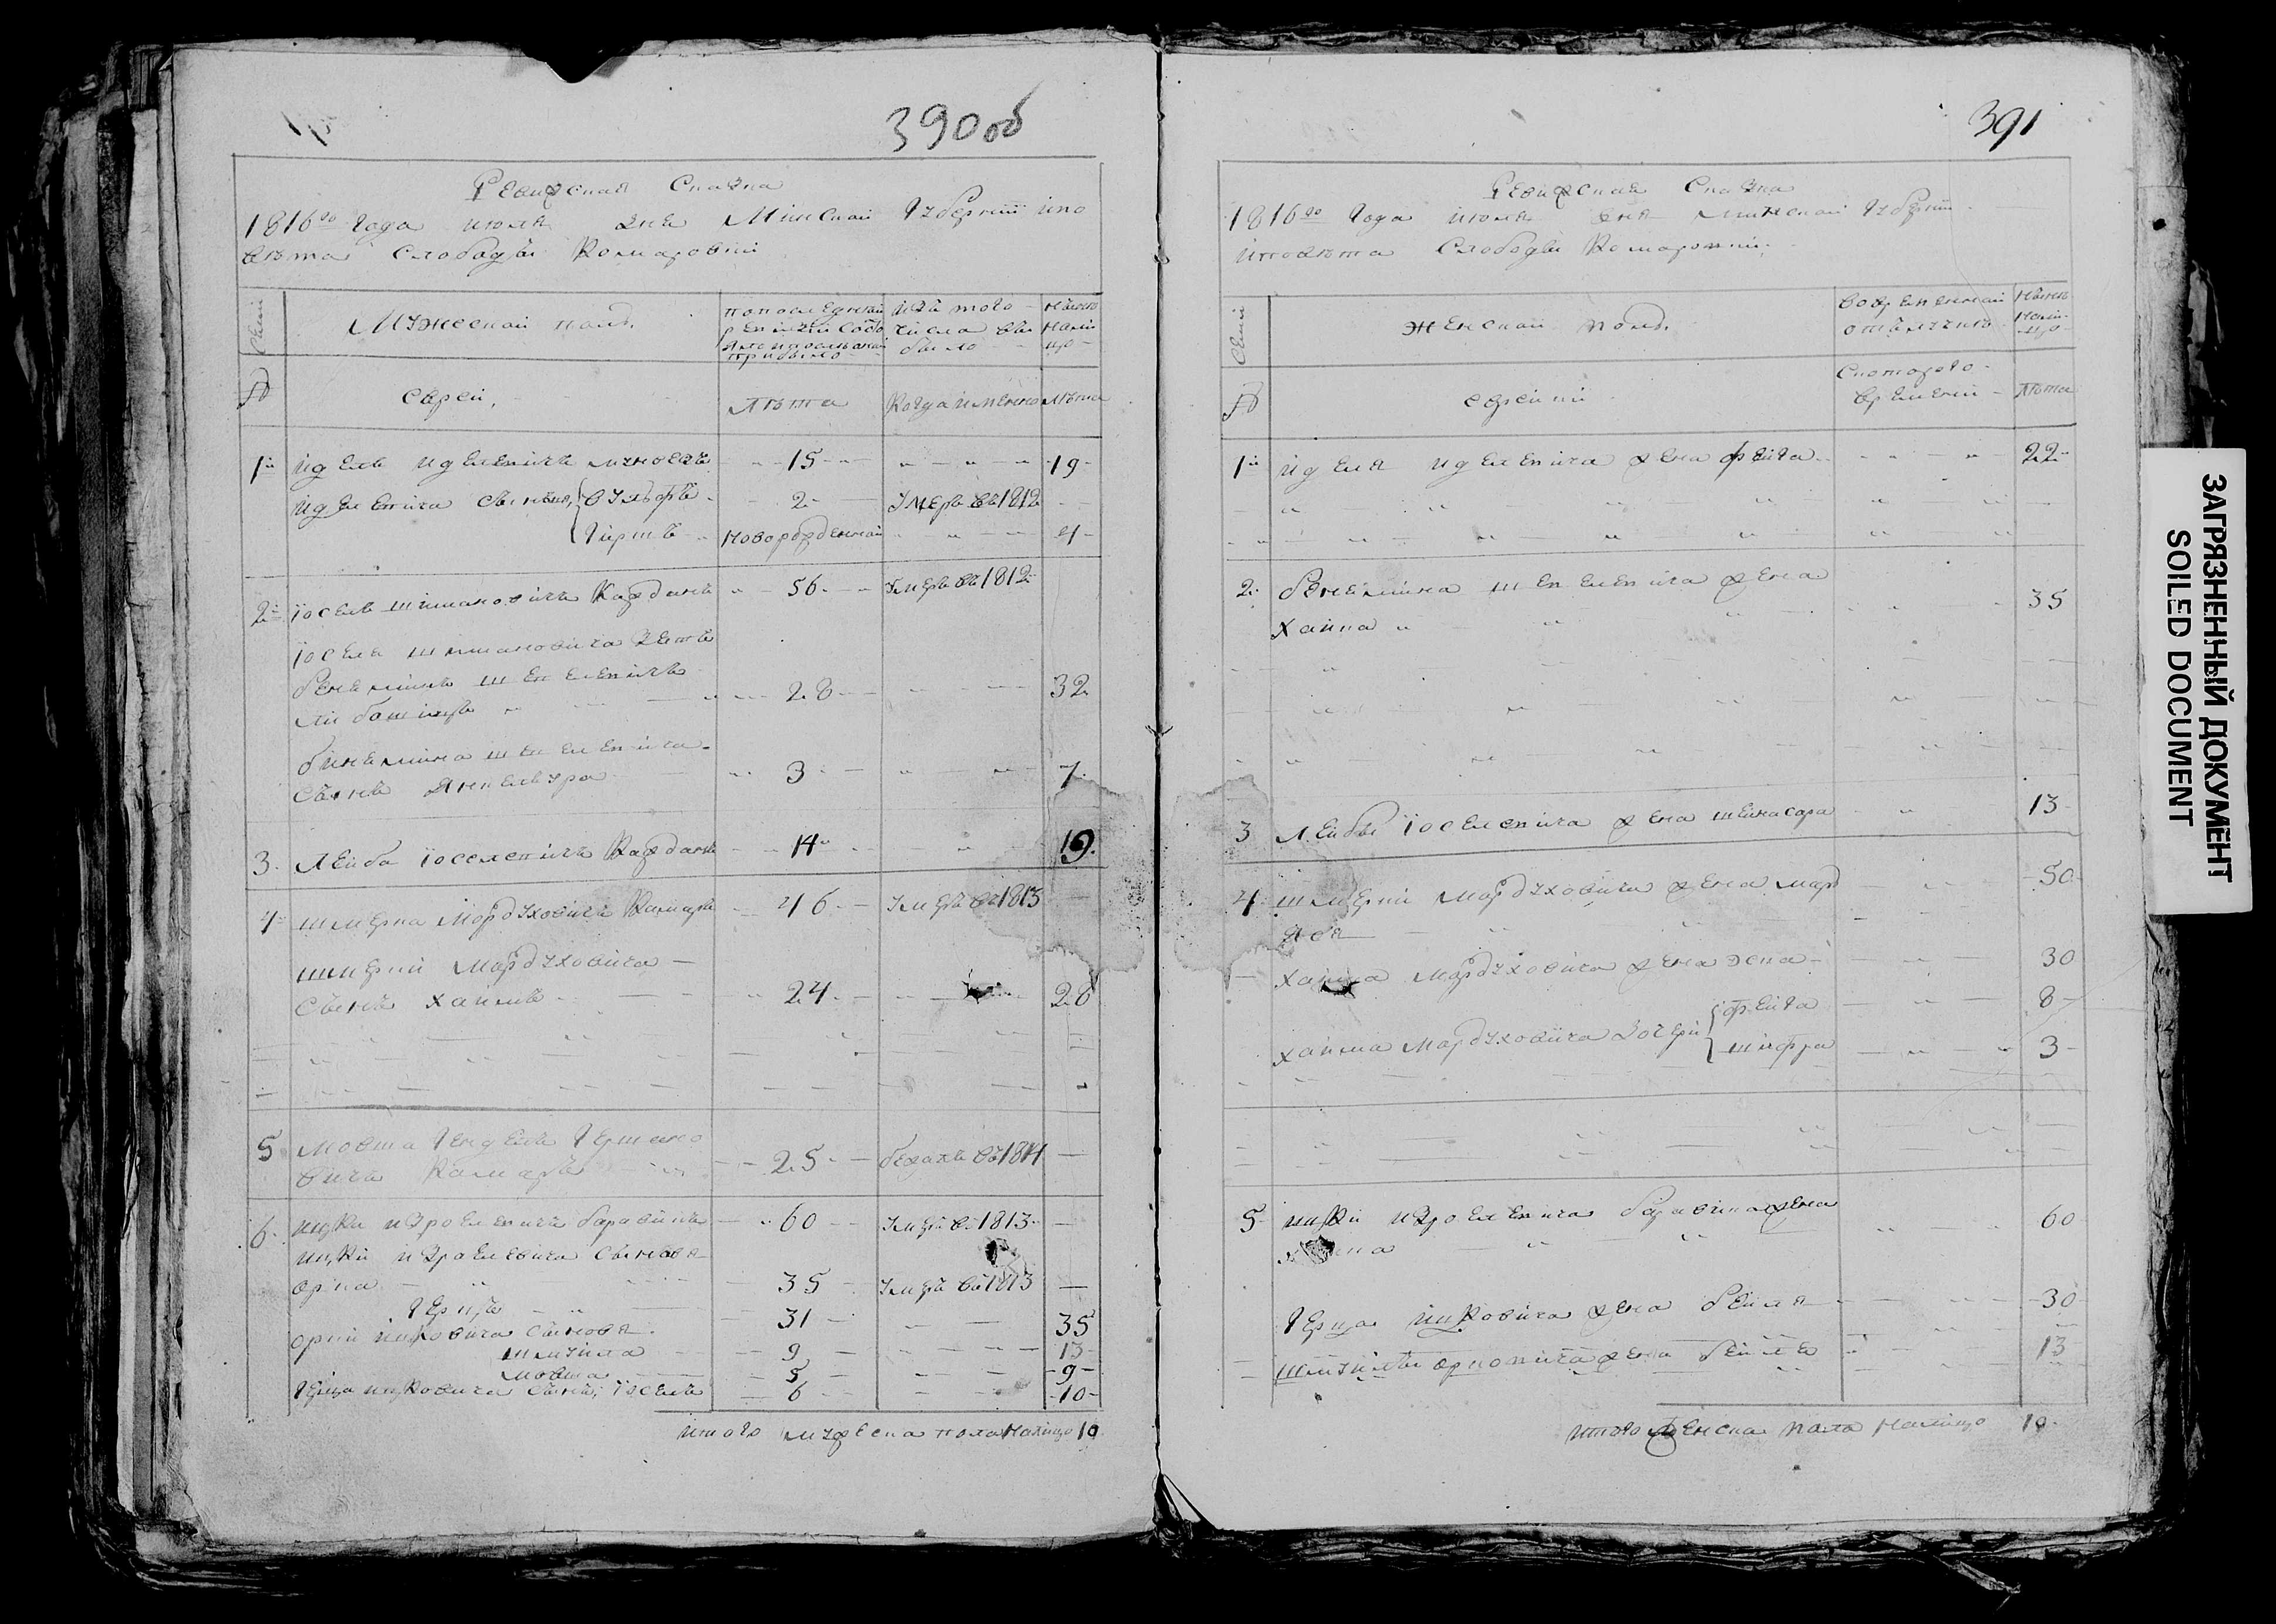 390 об
Ревижская Сказка
1816го Года июля дня Минской Губернiи ипо
вѣта Слободы Комаровки
Семьи
Мужеской полъ
попоследней
ревизiи состо
яло и после оной
прибыло
изъ того
числа вы
было
Нынѣ
нали
цо
№
евреи
лѣта
когда имянно
лѣта
1й Идель Иделевичь - - 15 - - 19
Иделевича сыновья, { Вульфъ - 2 - Умеръ въ 1812
Гиршъ Новорожденной 4
2й Iосель Шимановичь Каждань 56 Умеръ въ 1812
Iоселя Шимановича Зеть
Бенеминъ Шепелевичь
28 - 32
Бинемина Шепелевича
Сынъ Янкельюра 3 - 7
3. Лейба Iоселевичь Каждань 14 - 19.
4 Шмерка Мордуховичь Камаръ 46 Умеръ въ 1813
Шмерки Мордуховича
Сынъ Хаимъ 24 - 28
5 Мовша Гендель Гершано
вичь Камаръ 25 бежалъ въ 1814
6. Ицки Израелевичь Баравикъ 60 Умеръ въ 1813
Ицки Израелевича Сыновья
Орка 35 Умеръ въ 1813
Герцъ 31 - 35
Орки Ицковича Сыновя
Шмуила 9 - 13
Мовша 5 - 9
Герца Ицковича Сынъ, Iосель 6 - 10
Итого мужеска пола налицо 10
391
Ревижская Сказка
1816го Года июля дня Минской Губернiи
иповѣта Слободы Комаровки
Семьи
Женской полъ
Вовременной
отълучкѣ
Нынѣ
нали
цо
№
еврейки
Скоторого
времени
лѣта
1й Иделя Иделевича жена Фейга 22
2. Бенемина Шепелевича жена
Хаика 35
3 Лейбы Iоселевича жена Шейнасора 13
4 Шмерки Мордуховича жена Мард 50
Хаима Мордуховича жена Эска 30
Хаима Мордуховича Дочери { Фейга 8
Шифра 3
5 Ицки Израелевича Баравика жена
60
Герца Ицковича жена Бейля 30
Шмуилы Орковича жена Бейле 13
Итого женска пола налицо 10
ЗАГРЯЗНЕННЫЙ ДОКУМЕНТ
SOILED DOCUMENT